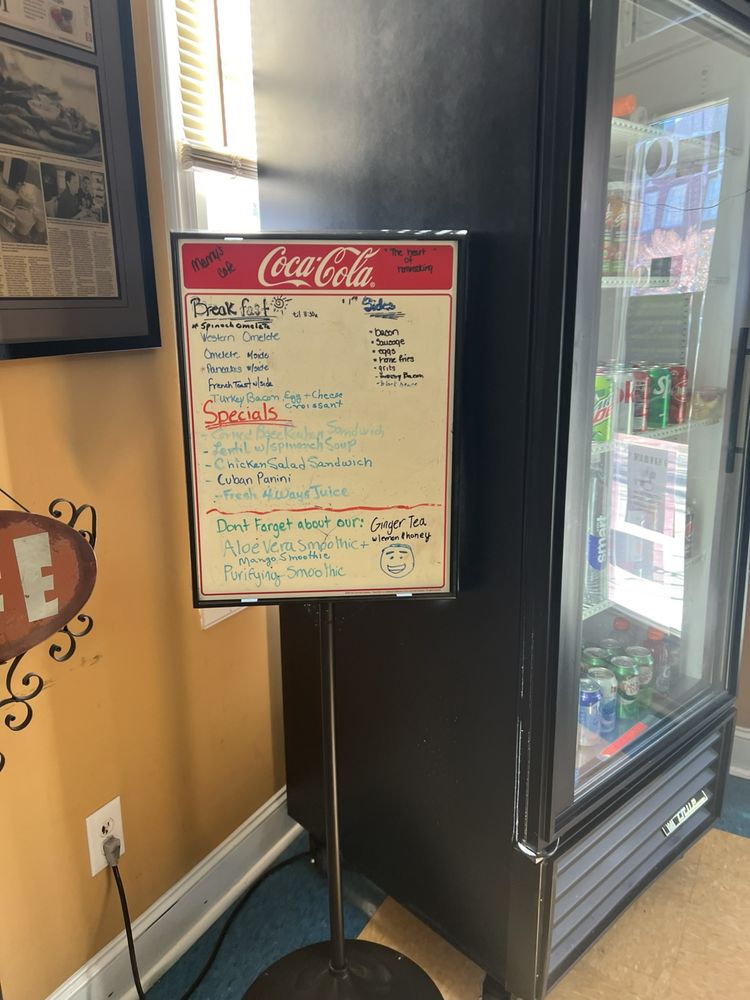 Merry's
Cafe
Coca-Cola
"The heart
of
Breakfast
Sides
* Spinach Omelete
Western Omelete
Omelete w/side
Pancakes w/side
French Toast w/side
Turkey Bacon, Egg + Cheese
Croissant
- bacon
- Sausage
- eggs
- home fries
- grits
- Turkey Bacon
Specials
Sandwich
- Lentil w/spinach Soup
- Chicken Salad Sandwich
- Cuban Panini
- Fresh 4 Ways Juice
Dont Forget about our:
Ginger Tea
w lemon & honey
Aloe Vera Smoothie +
Mango Smoothie
Purifying Smoothie
E
smart